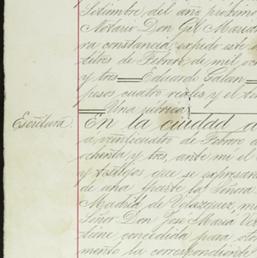 Setiembre del año próximo
Notario Don Gil María
ra constancia, expido este
tidos de Febrero de mil oc
y tres = Eduardo Galan =
pesos, cuatro reales y el
= Una rúbrica
Escritura. En la ciudad
a veinticuatro de Febrero
chenta y tres, ante mi el
y testigos que se expresan
de una parte la Señora
Madrid de Velazquez, m
Señor Don José María Ve
tiene concedida para
mento la correspondiente